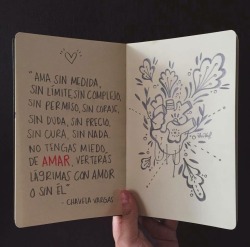 "AMA SIN MEDIDA,
SIN LÍMITE, SIN COMPLEJO,
SIN PERMISO, SIN CORAJE,
SIN DUDA, SIN PRECIO,
SIN CURA, SIN NADA.
NO TENGAS MIEDO
DE AMAR, VERTERÁS
LÁGRIMAS CON AMOR
O SIN ÉL"
- CHAVELA VARGAS